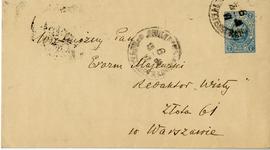 Wielmożny Pan
Erazm Majewski
Redaktor "Wisły"
Złota 61
w Warszawie